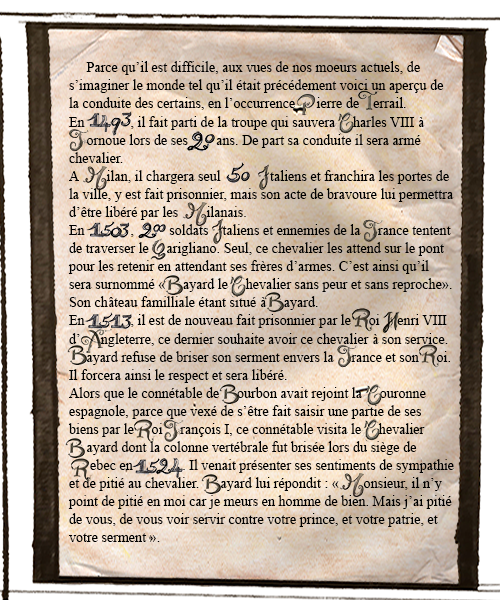 Parce qu'il est difficile, aux vues de nos moeurs actuels, de
s'imaginer le monde tel qu'il était précédement voici un aperçu de
la conduite des certains, en l'occurrence Pierre de Terrail.
En 1493, il fait parti de la troupe qui sauvera Charles VIII à
Fornoue lors de ses 20 ans. De part sa conduite il sera armé
chevalier.
A Milan, il chargera seul 50 Italiens et franchira les portes de
la ville, y est fait prisonnier, mais son acte de bravoure lui permettra
d'être libéré par les Milanais.
En 1503, 200 soldats Italiens et ennemies de la France tentent
de traverser le Garigliano. Seul, ce chevalier les attend sur le pont
pour les retenir en attendant ses frères d'armes. C'est ainsi qu'il
sera surnommé «Bayard le Chevalier sans peur et sans reproche».
Son château familliale étant situé à Bayard.
En 1513, il est de nouveau fait prisonnier par le Roi Henri VIII
d'Angleterre, ce dernier souhaite avoir ce chevalier à son service.
Bayard refuse de briser son serment envers la France et son Roi.
Il forcera ainsi le respect et sera libéré.
Alors que le connétable de Bourbon avait rejoint la Couronne
espagnole, parce que vexé de s'être fait saisir une partie de ses
biens par le Roi François I, ce connétable visita le Chevalier
Bayard dont la colonne vertébrale fut brisée lors du siège de
Rebec en 1524. Il venait présenter ses sentiments de sympathie
et de pitié au chevalier. Bayard lui répondit : « Monsieur, il n'y
point de pitié en moi car je meurs en homme de bien. Mais j'ai pitié
de vous, de vous voir servir contre votre prince, et votre patrie, et
votre serment ».